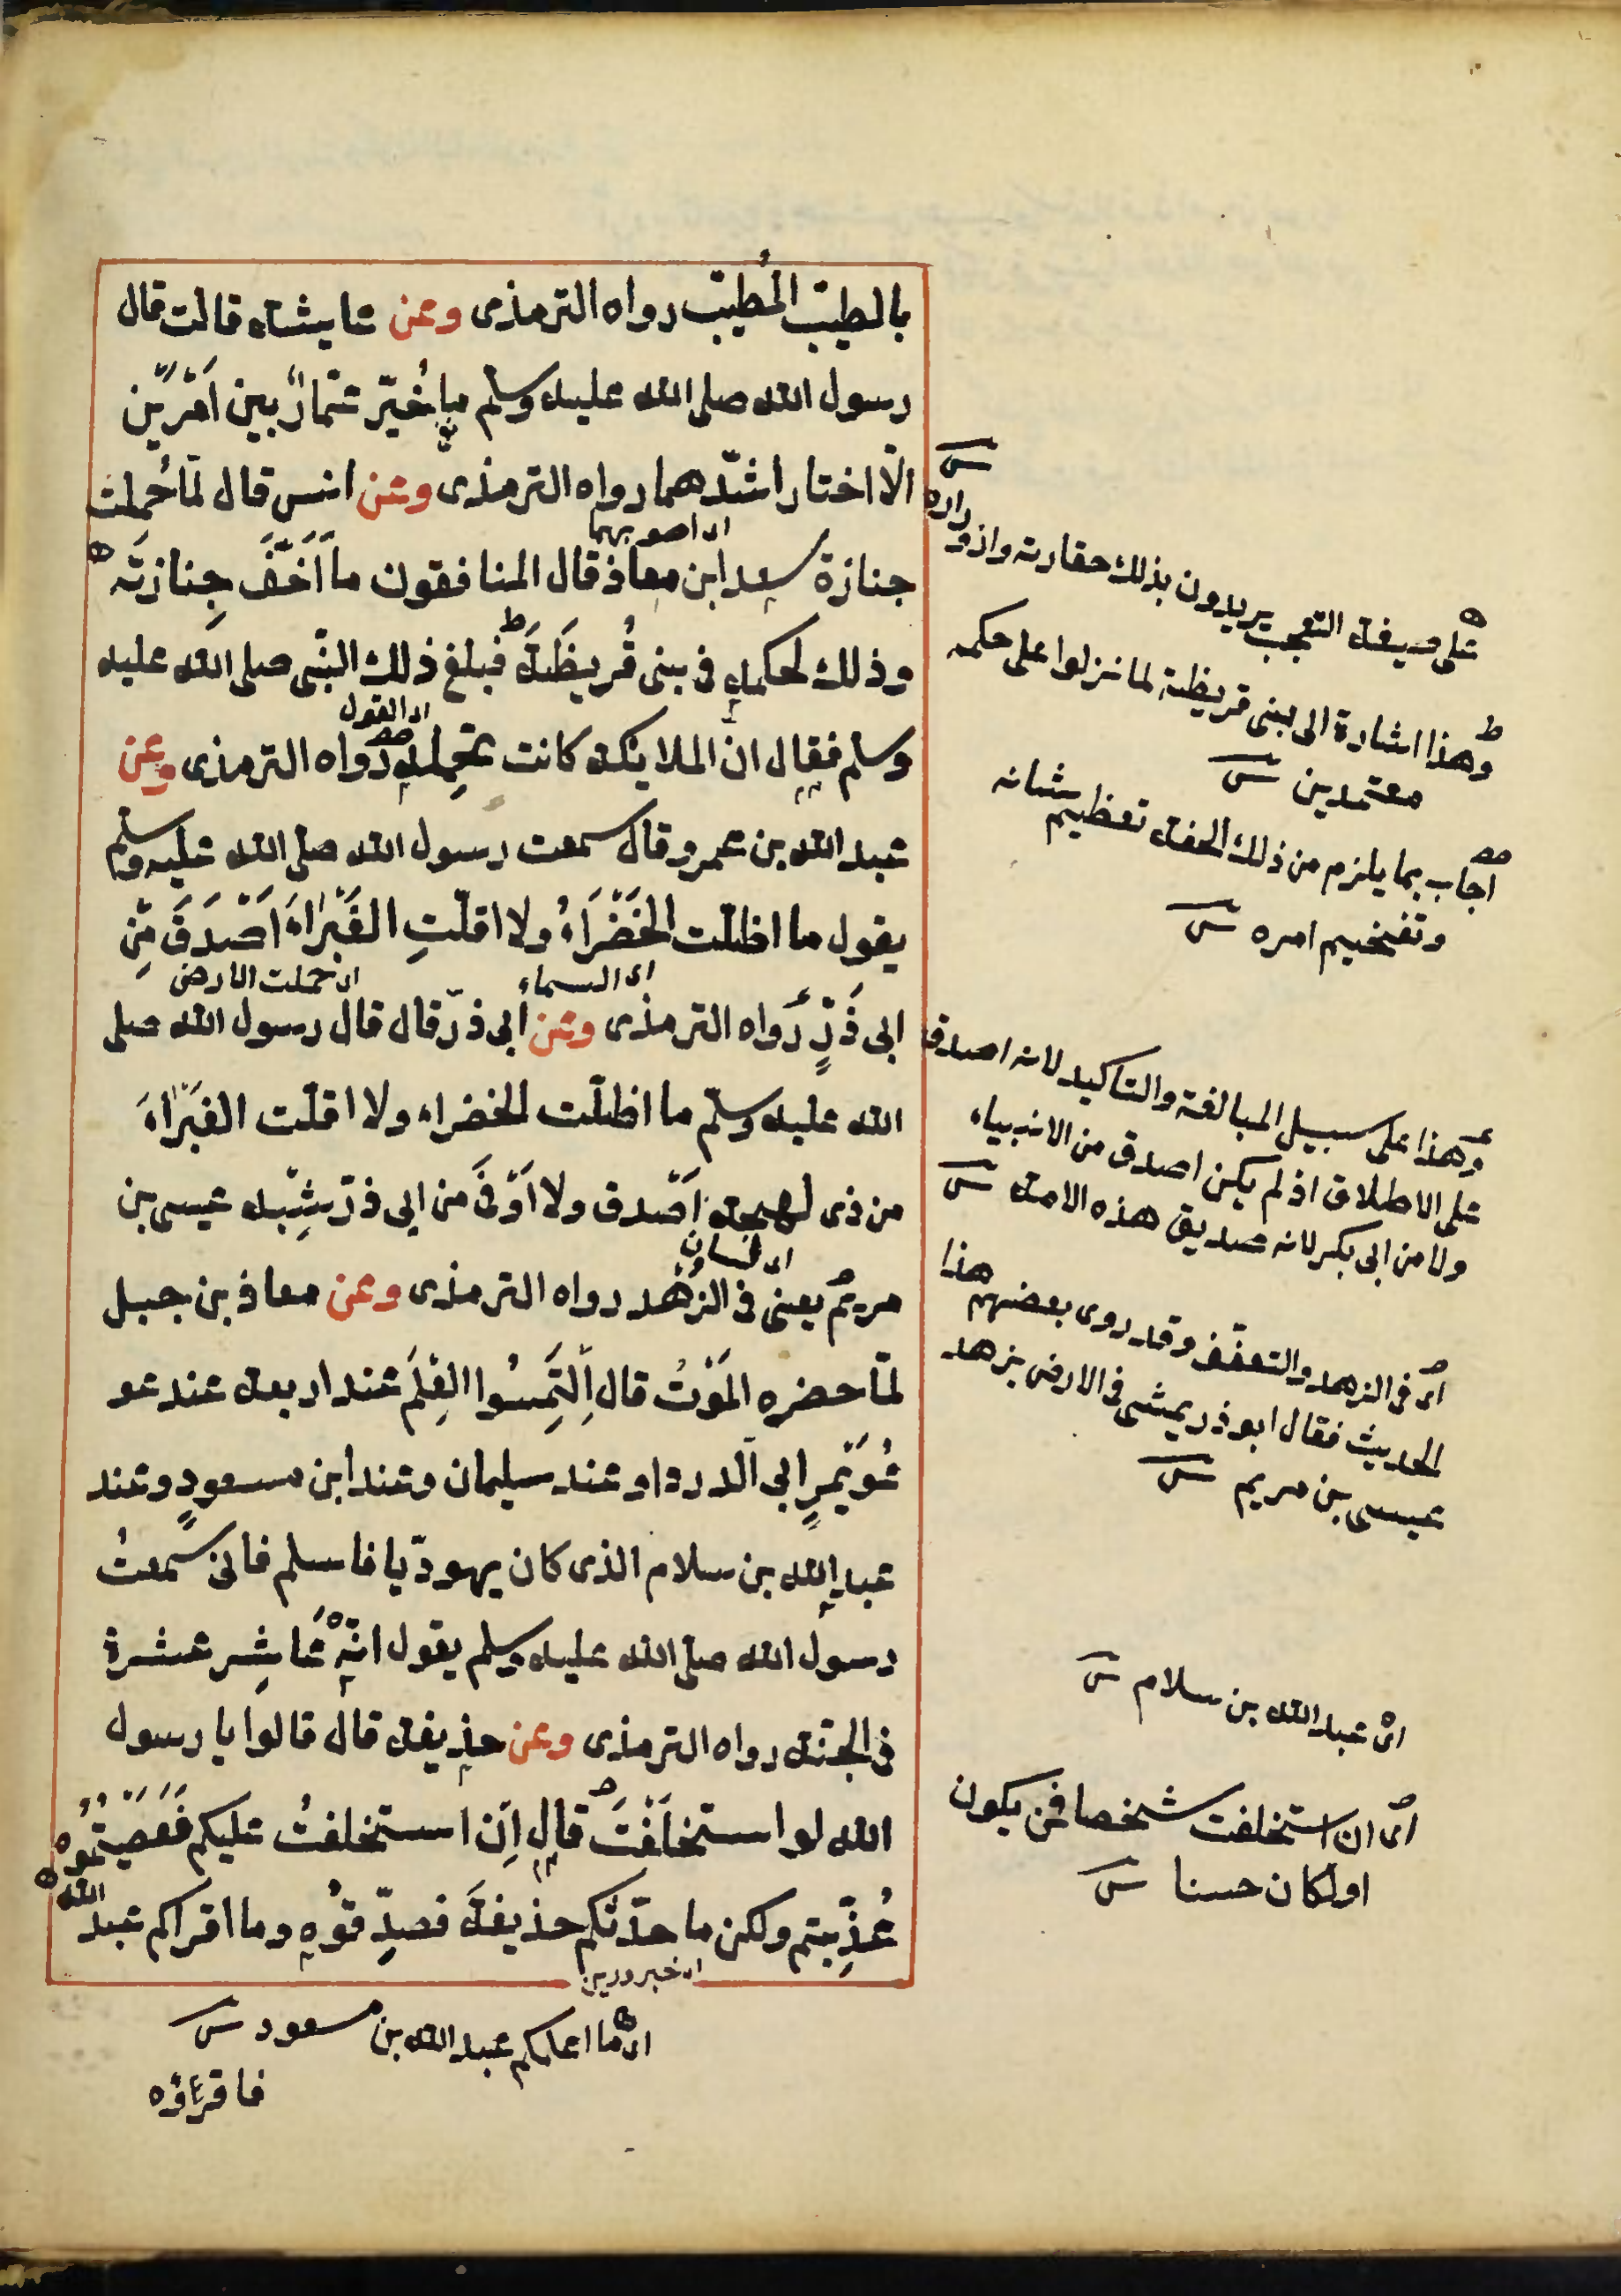 بالطيّب المُطيّب رواه الترمذى وعن عايشة قالت قال
رسول الله صلى الله عليه وسلم ما خُيّر عمّارٌ بين اَمْرَيْن
الّا اختار اشدّهما رواه الترمذى وعن انس قال لمّا حُملت
اى اصوبهما
جنازة سعد ابن معاذ قال المنافقون ما اَخَفَّ جِنازَتَه
وذلك لحكمهِ فى بنى قُريظَةَ فبلغ ذلك النّبى صلى الله عليه
اى القول
وسلم فقال انّ الملايكة كانت تحمِله رواه الترمذى وعن
عبد الله بن عمرو قال سمعت رسول الله صلى الله عليه وسلم
يقول ما اظلّت الخَضْرَاءُ ولا اقلّتِ الغَبْرَاءَ اَصْدَقَ مِّن
اى السماء
اى حملت الارض
ابى ذَرٍّ رَواه الترمذى وعن ابى ذرّ قال قال رسول الله صلى
الله عليه وسلّم ما اظلّت الخضراء ولا اقلّت الغَبْرَاءَ
من ذى لهجة اَصْدق ولا اَوْفَى من ابى ذرّ شِبْه عيسى بن
اى لسان
مريم يعنى فى الزهْد رواه الترمذى وعن معاذ بن جبل
لمّا حضره المَوْتُ قال اِلتَمِسُوا العِلمَ عند اربعة عند عو
عُوَيْمِرٍ ابى الدرداء وعند سليمان وعند ابن مسعودٍ وعند
عبد الله بن سلام الذى كان يهوديّا فاسلم فانى سمعتُ
رسول الله صلى الله عليه وسلم يقول انّه عَاشِر عشرة
فى الجنّة رواه الترمذى وعن حذيفة قال قالوا يا رسول
الله لو استخلَفْتَ قال اِن استخلفتُ عليكم فَعَصَيْتُمُوْه
عُذِّبتم ولكن ما حدّثكم حذيفةَ فصدِّقوُه وما اقراكم عبد الله
على صيغة التعجب يريدون بذلك حقارته وازدراده
وهذا اشارة الى بنى قريظة لما نزلوا على حكمه
معتمدين
اجاب بما يلزم من ذلك الخفة تعظيم شانه
وتفخيم امره
وهذا على سبيل المبالغة والتاكيد لانه اصدق
على الاطلاق اذ لم يكن اصدق من الانبياء
ولا من ابى بكر لانه صديق هذه الامة
اى فى الزهد والتعفّف وقد روى بعضهم هذا
الحديث فقال ابو ذر يمشى فى الارض بزهد
عيسى بن مريم
اى عبد الله بن سلام
اى ان استخلفت شخصا فمن يكون
او لكان حسنا
اى ما اعلمكم عبد الله بن مسعود
فاقرءؤه